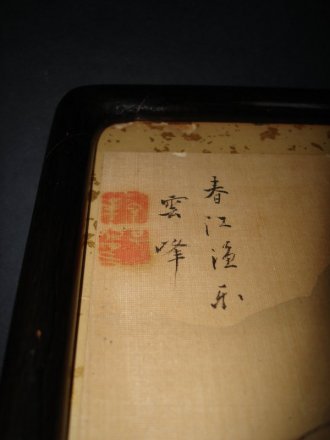 春江漁楽
雲峰